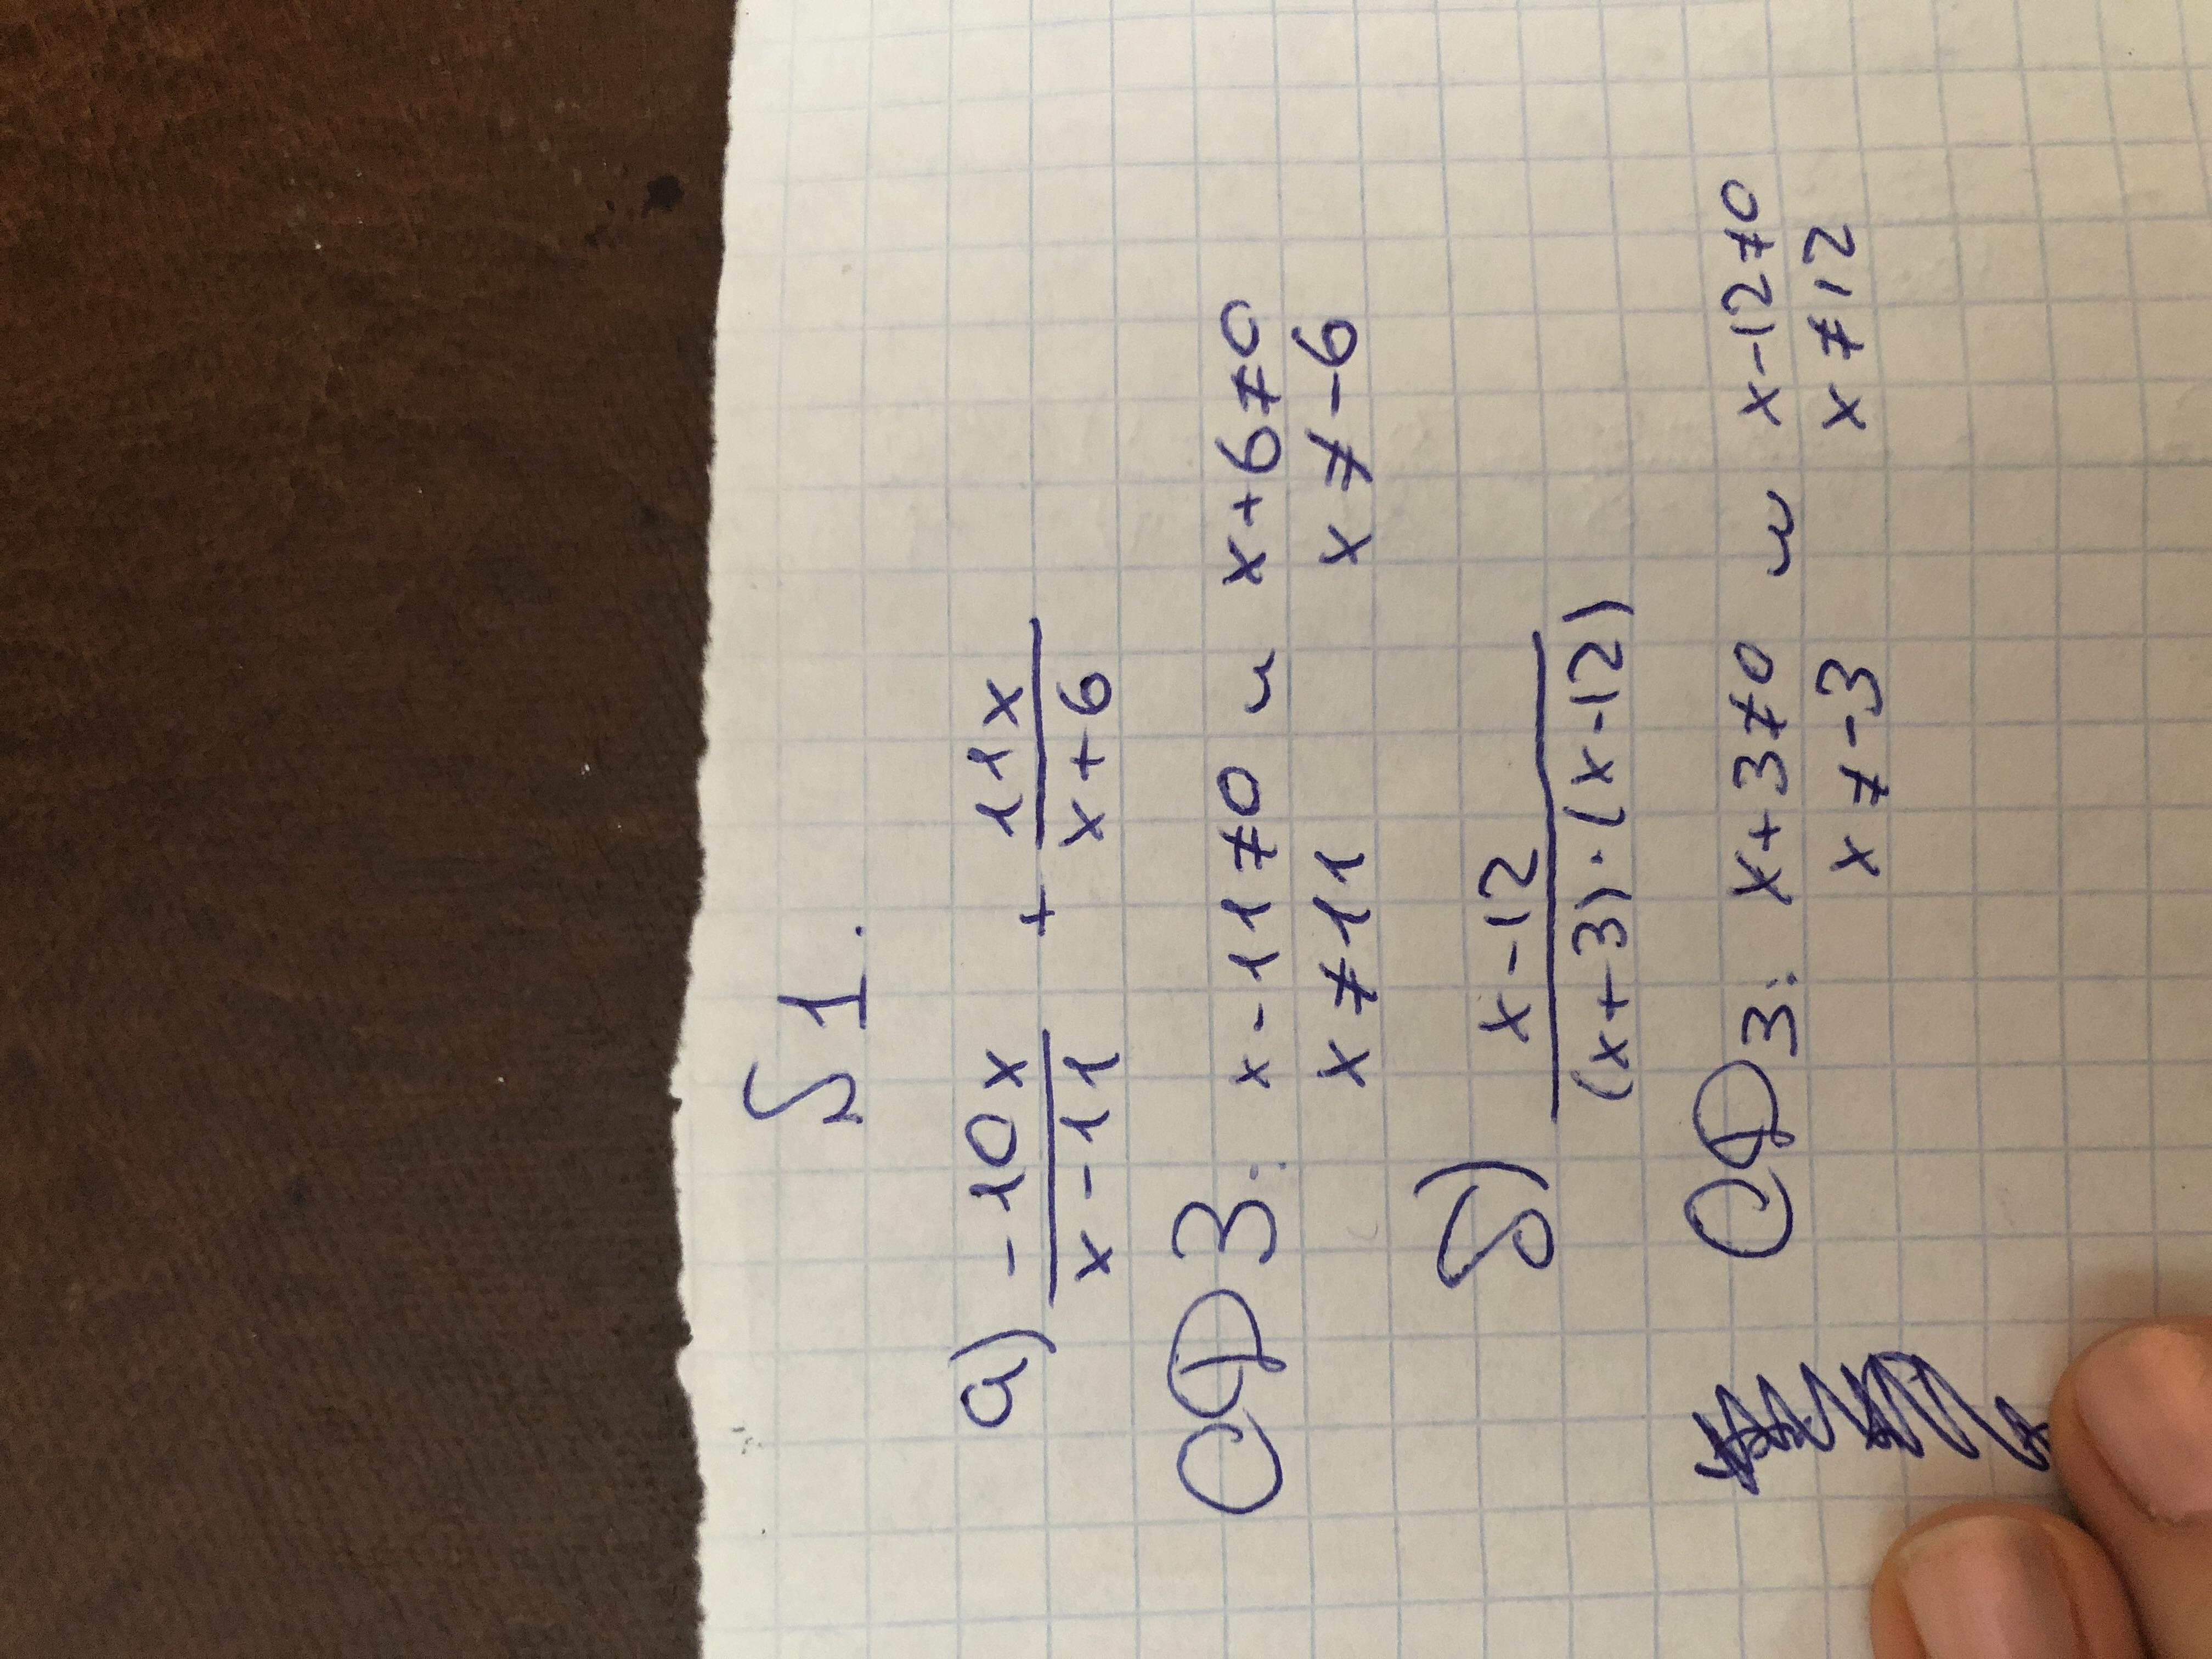 §1.
а) -10x/x-11 + 11x/x+6
ОДЗ: x-11≠0 и x+6≠0
x≠11 x≠-6
б) x-12/(x+3)·(x-12)
ОДЗ: x+3≠0 и x-12≠0
x≠-3 x≠12